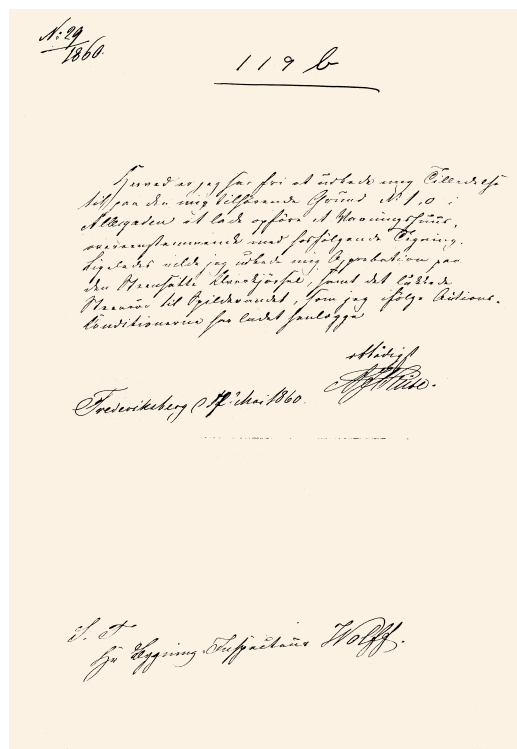 N: 29
1860.
119 b
Herved er jeg saa fri at udbede mig Tilladelse
til paa den mig tilhørende Grund No 10 i
Alleegaden at lade opføre et Vaaningshuus,
overeensstemmende med hosfølgende Tegning.
Ligeledes vilde jeg udbede mig Approbation paa
den Steensatte, samt det lukkede
Steenrör til Spildevandet, som jeg ifølge Auctions-
Conditionerne har ladet henlægge
ærbødigst
Frederiksberg d 17 Mai 1860.
S. T.
Hr Bygning-Inspecteur Wolff.